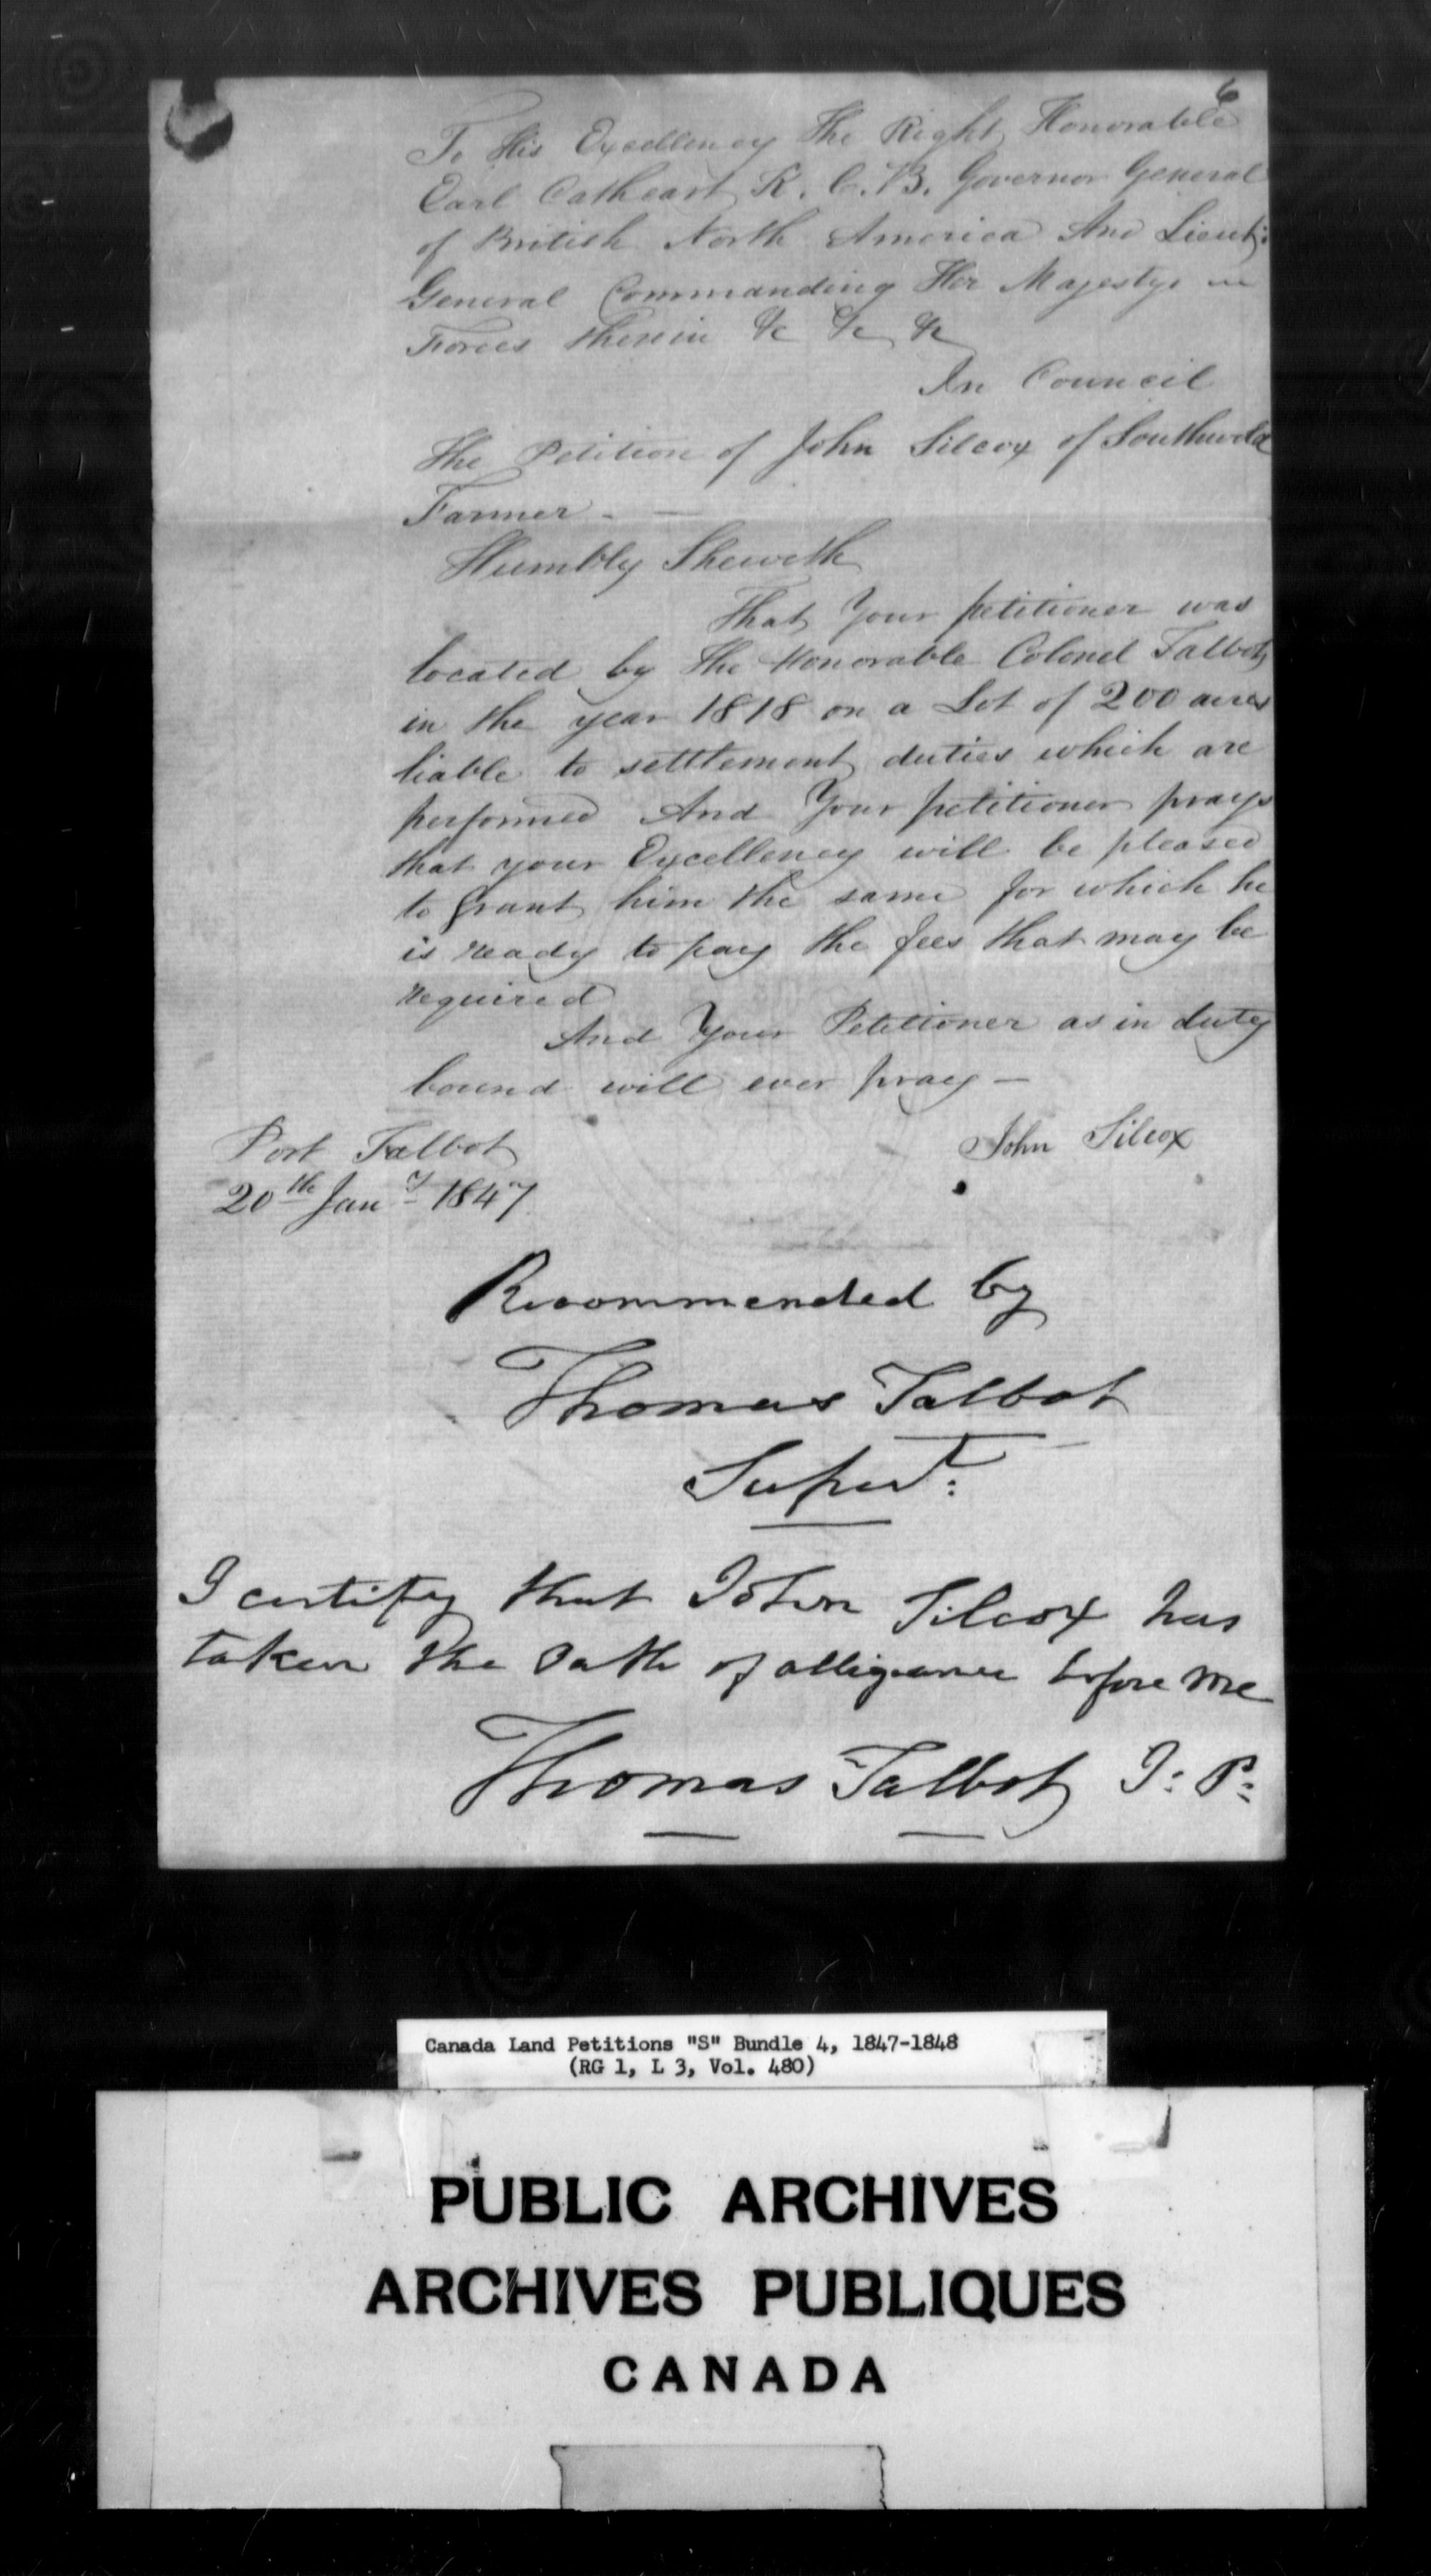 6
To His Excellency The Right Honorable
Earl Cathcart K. C. B. Governor General
of British North America And Lieut:
General Commanding Her Majestys
Forces therein &c &c &c
In Council
The Petition of John Silcox of Southwold
Farmer - —
Humbly Sheweth
That Your petitioner was
located by the Honorable Colonel Talbot
in the year 1818 on a Lot of 200 acres
liable to settlement duties which are
performed And Your petitioner prays
that your Excellency will be pleased
to Grant him the same for which he
is ready to pay the fees that may be
required
And Your Petitioner as in duty
bound will ever pray —
Port Talbot
John Silcox
20th Jany 1847
Recommended by
Thomas Talbot
Supert:
I certify that John Silcox has
taken the Oath of allegiance before me
Thomas Talbot J: P:
Canada Land Petitions "S" Bundle 4, 1847-1848
(RG 1, L 3, Vol. 480)
PUBLIC ARCHIVES
ARCHIVES PUBLIQUES
CANADA